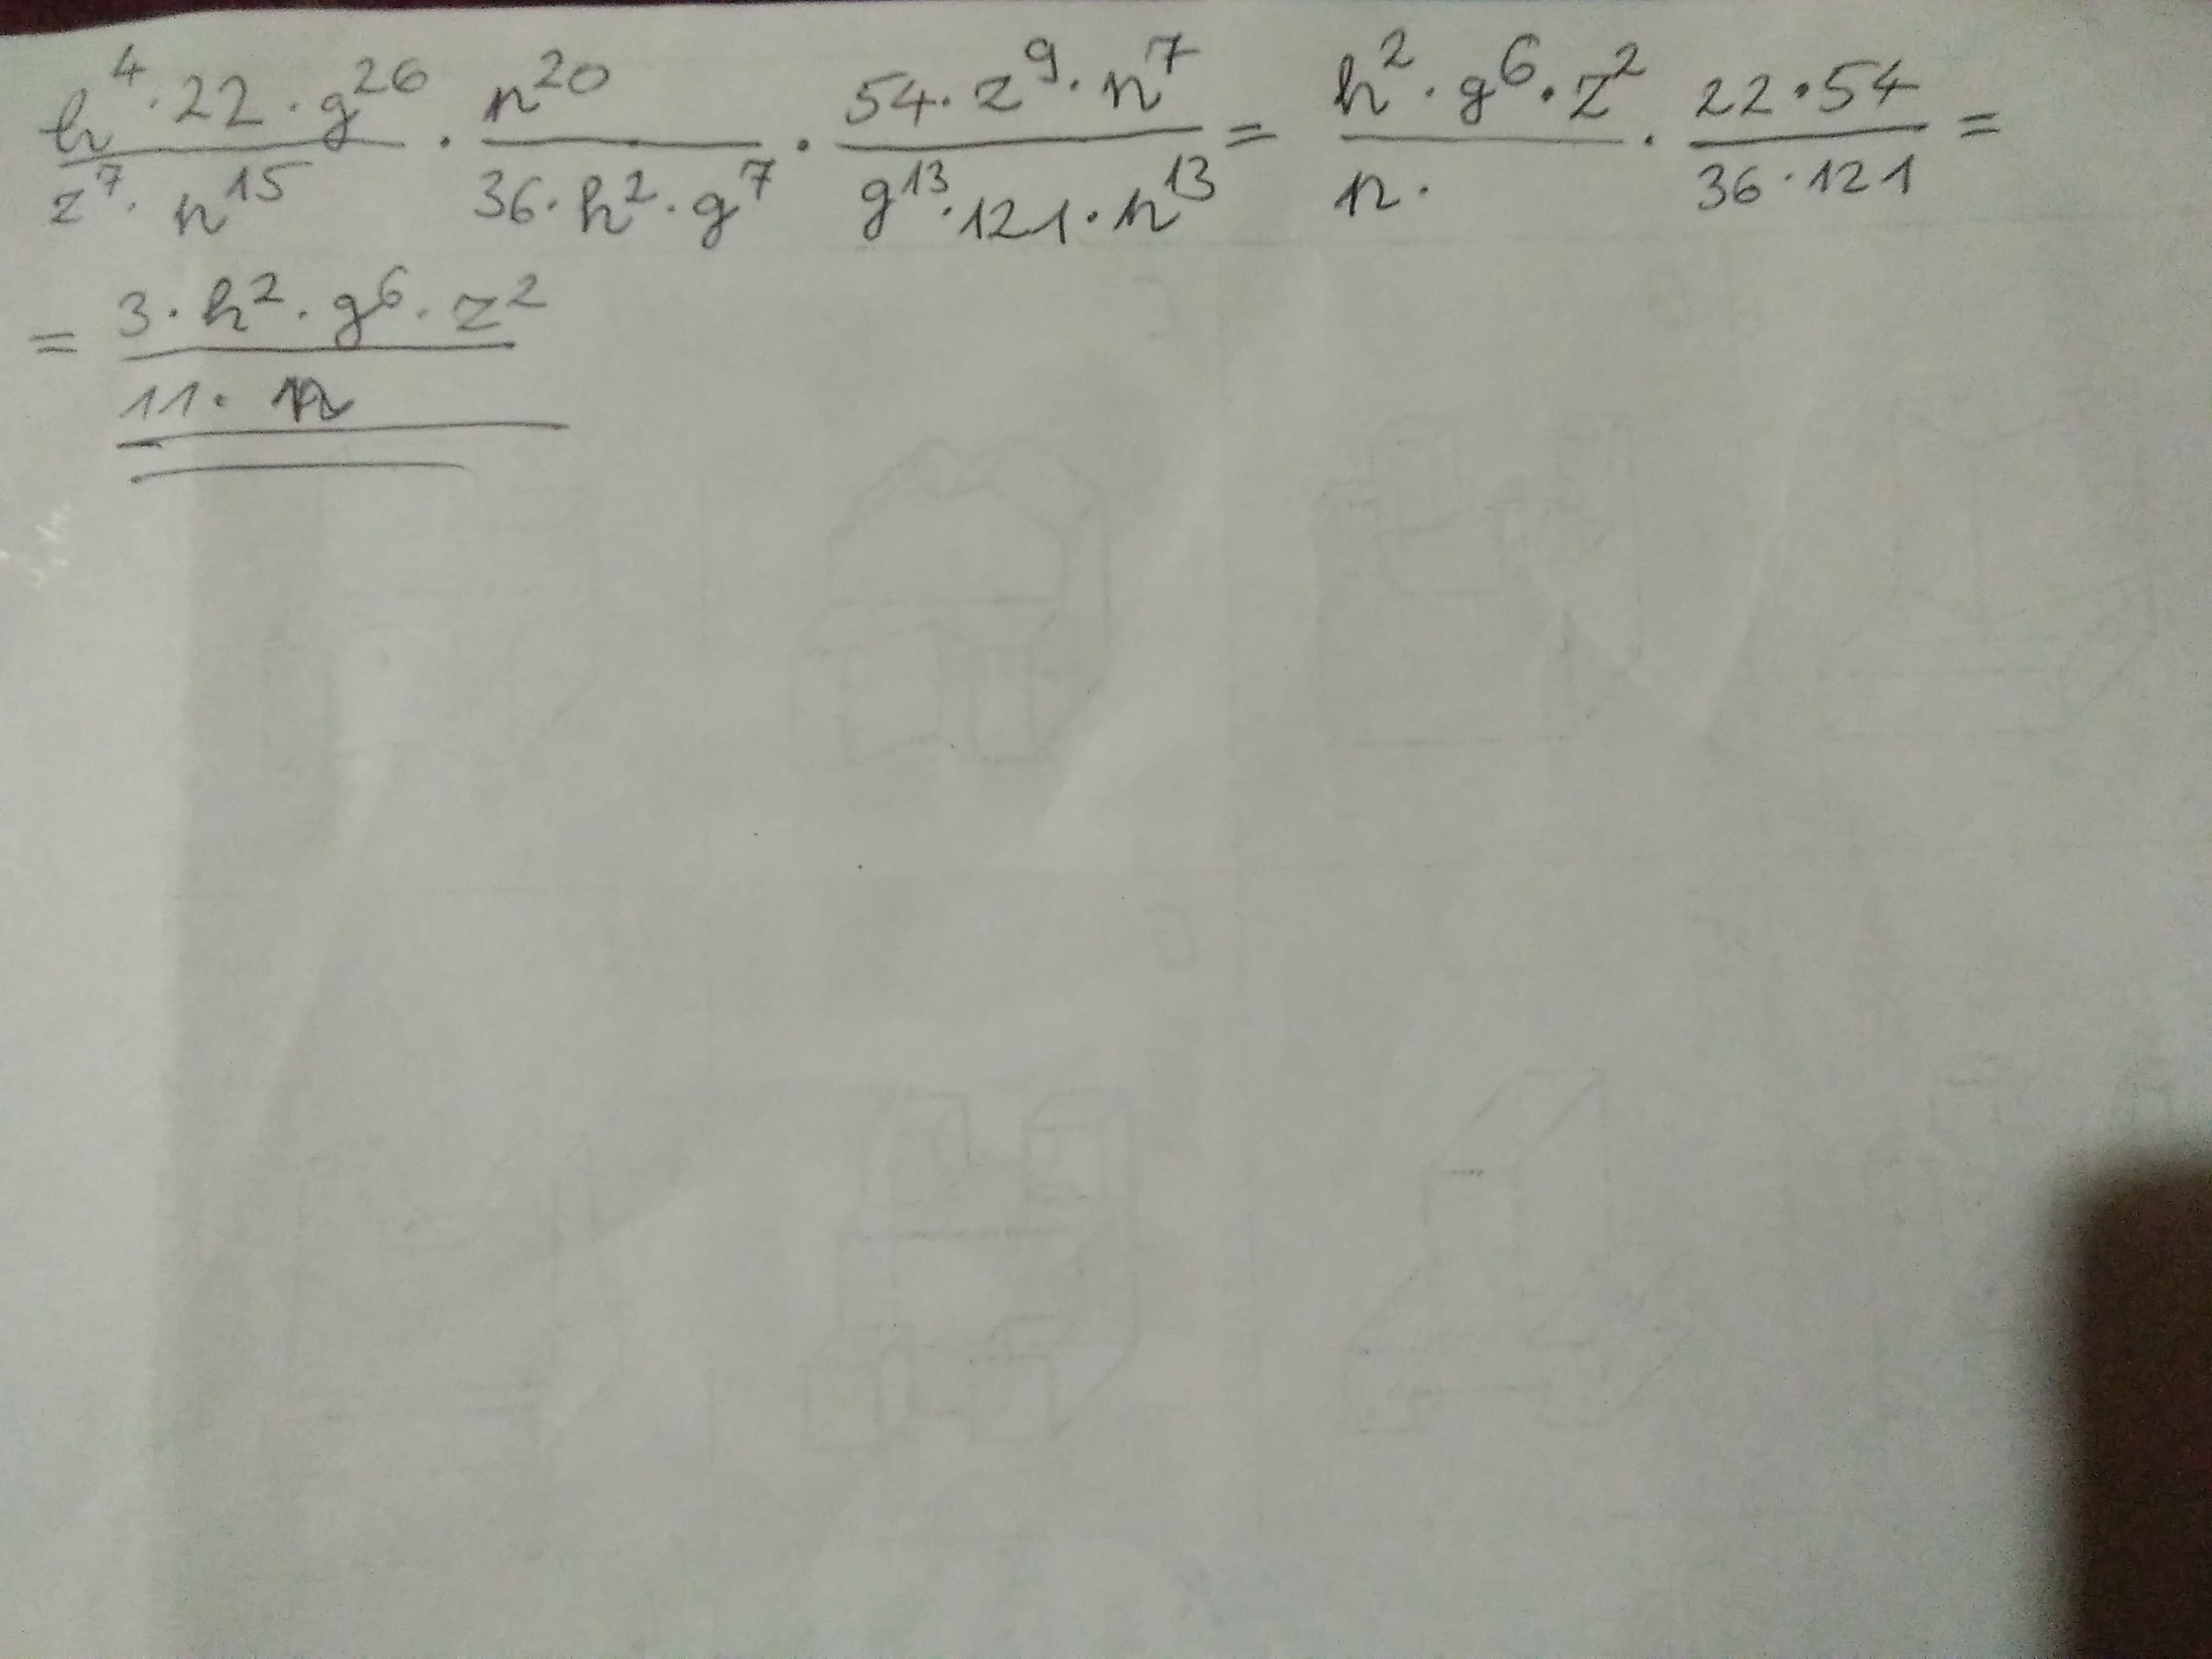 h⁴·22·g²⁶/z⁷·n¹⁵ · n²⁰/36·h²·g⁷ · 54·z⁹·n⁷/g¹³·121·n¹³ = h²·g⁶·z²/n· · 22·54/36·121 =
= 3·h²·g⁶·z²/11·n